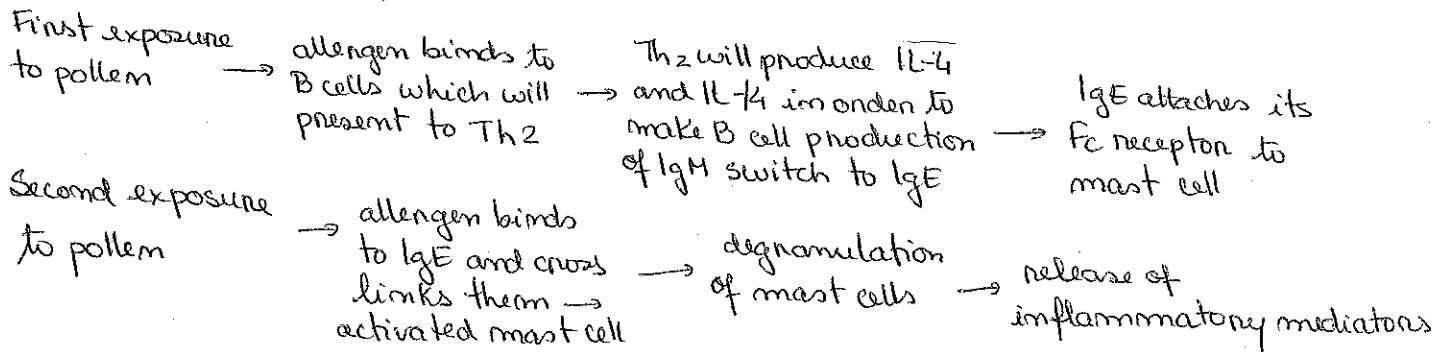 First exposure
to pollen →
allergen binds to
B cells which will →
present to Th2
Th2 will produce IL-4
and IL-14 in order to
make B cell production →
of IgM switch to IgE
IgE attaches its
Fc receptor to
mast cell
Second exposure
to pollen →
allergen binds
to IgE and cross
links them →
activated mast cell
→ degranulation
of mast cells
→ release of
inflammmatory mediators